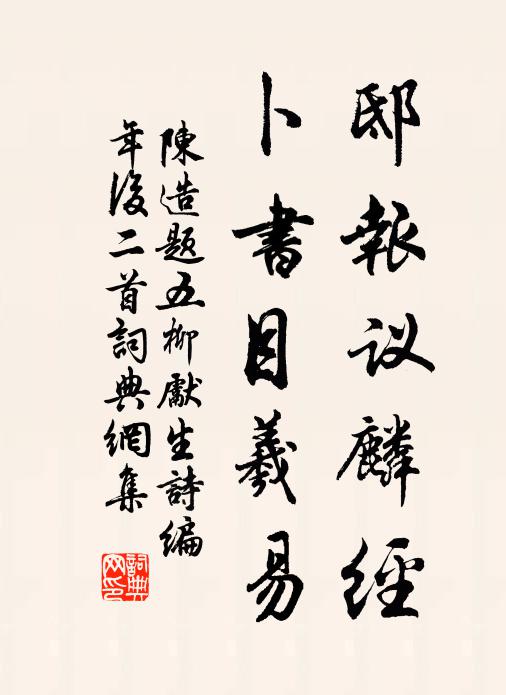 邸報议麟經
卜書目羲易
陳造題五柳獻生詩编
年後二首詞典網集
詞典网印